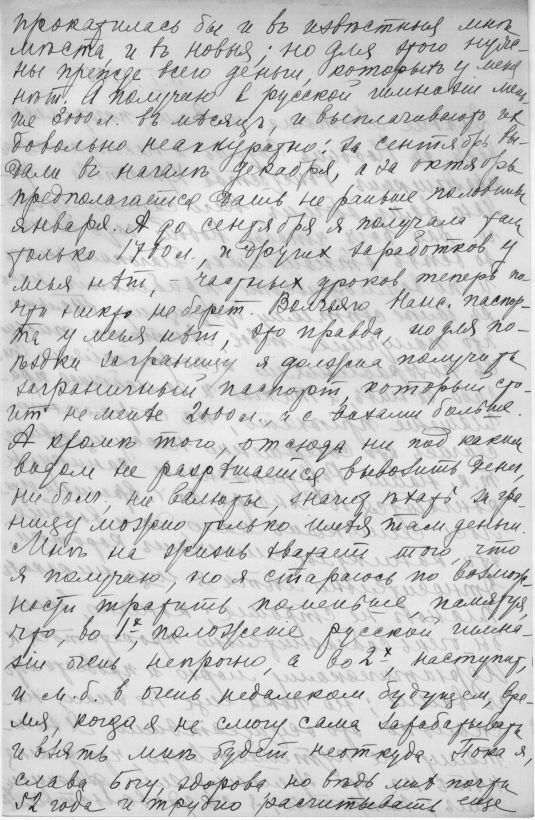 прокатилась бы и въ извѣстныя мнѣ
мѣста, и въ новыя; но для этого нуж-
ны прежде всего деньги, которыхъ у меня
нѣт. Я получаю в русской гимназіи мень
ше 3000 л. въ мѣсяцъ, и выплачивают их
довольно неаккуратно: за сентябрь вы-
дали въ началѣ декабря, а за октябрь
предполагается дать не раньше половины
января. А до сентября я получала там
только 1700 л., и других заработков у
меня нѣт, – частных уроков теперь по-
чти никто не берет. Волчьяго Нанс. паспор-
та у меня нѣт, это правда, но для по-
ѣздки заграницу я должна получить
заграничный паспорт, который сто-
ит не менѣе 2000 л., а с визами больше.
А кромѣ того, отсюда ни под каким
видом не разрѣшается вывозить денег,
ни болг., ни валюты, значит ѣхать за гра-
ницу можно только имѣя там деньги.
Мнѣ на жизнь хватает того, что
я получаю, но я стараюсь по возмож-
ности тратить поменьше, памятуя,
что, во 1х, положеніе русской гимна-
зіи очень непрочно, а во 2х, наступит,
и м.б. в очень недалеком будущем, вре-
мя, когда я не смогу сама зарабатывать
и взять мнѣ будет неоткуда. Пока я,
слава Богу, здорова, но вѣдь мнѣ почти
52 года и трудно расчитывать еще